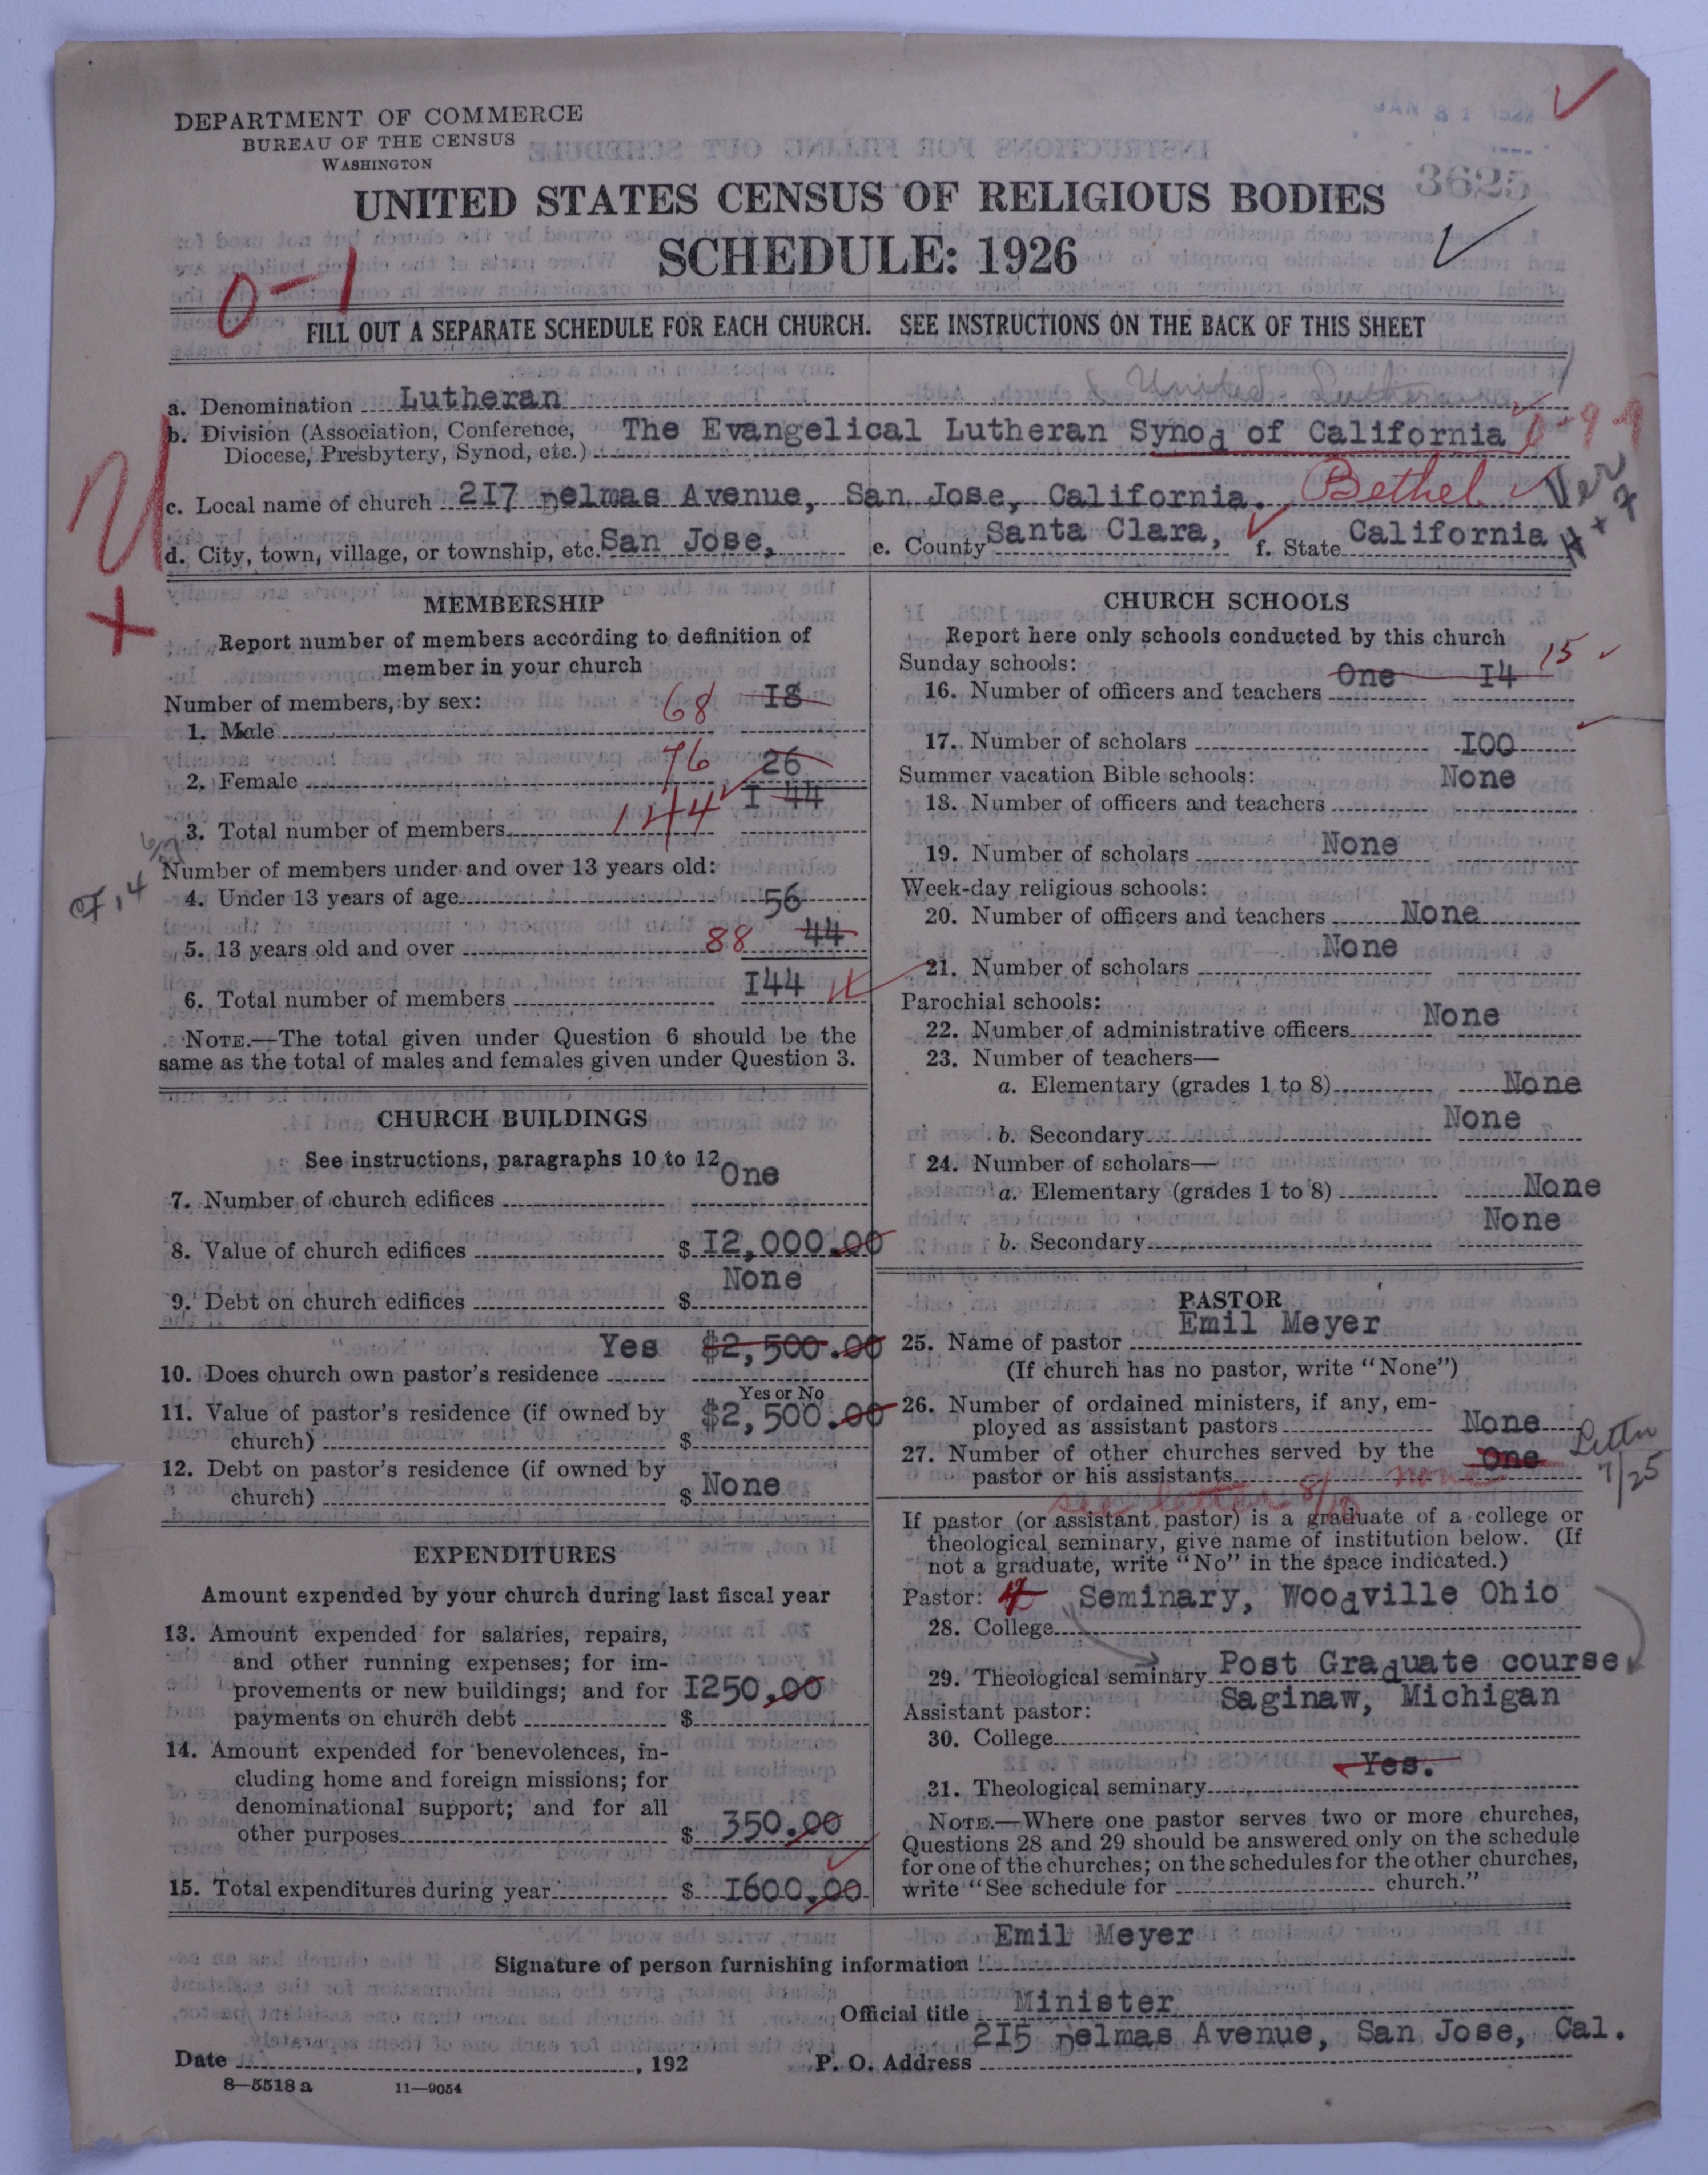 DEPARTMENT OF COMMERCE
BUREAU OF THE CENSUS
WASHINGTON
3625
UNITED STATES CENSUS OF RELIGIOUS BODIES
SCHEDULE: 1926
0-1
FILL OUT A SEPARATE SCHEDULE FOR EACH CHURCH. SEE INSTRUCTIONS ON THE BACK OF THIS SHEET
United Lutheran
a. Denomination Lutheran
b. Division (Association, Conference, The Evangelical Lutheran Synod of California
Diocese, Presbytery, Synod, etc.)
c. Local name of church 217 Delmas Avenue, San Jose, California. Bethel
d. City, town, village, or township, etc. San Jose, e. County Santa Clara, f. State California
MEMBERSHIP
Report number of members according to definition of
member in your church
Number of members, by sex:
1. Male 68 18
2. Female 76 26
3. Total number of members 144 I 44
Number of members under and over 13 years old:
4. Under 13 years of age 56
5. 13 years old and over 88 44
6. Total number of members I44
NOTE.—The total given under Question 6 should be the
same as the total of males and females given under Question 3.
CHURCH BUILDINGS
See instructions, paragraphs 10 to 12
7. Number of church edifices One
8. Value of church edifices $ I2,000.00
9. Debt on church edifices $ None
10. Does church own pastor's residence Yes $2,500.00
Yes or No
11. Value of pastor's residence (if owned by
church) $ $2,500.00
12. Debt on pastor's residence (if owned by
church) $ None
EXPENDITURES
Amount expended by your church during last fiscal year
13. Amount expended for salaries, repairs,
and other running expenses; for im-
provements or new buildings; and for
payments on church debt $ I250,00
14. Amount expended for benevolences, in-
cluding home and foreign missions; for
denominational support; and for all
other purposes $ 350.00
15. Total expenditures during year $ I600.00
CHURCH SCHOOLS
Report here only schools conducted by this church
Sunday schools:
16. Number of officers and teachers One I4 15
17. Number of scholars I00
Summer vacation Bible schools:
18. Number of officers and teachers None
19. Number of scholars None
Week-day religious schools:
20. Number of officers and teachers None
21. Number of scholars None
Parochial schools:
22. Number of administrative officers None
23. Number of teachers—
a. Elementary (grades 1 to 8) None
b. Secondary None
24. Number of scholars—
a. Elementary (grades 1 to 8) None
b. Secondary None
PASTOR
25. Name of pastor Emil Meyer
(If church has no pastor, write "None")
26. Number of ordained ministers, if any, em-
ployed as assistant pastors None
27. Number of other churches served by the
pastor or his assistants One none
Letter
7/25
see letter 8/10
If pastor (or assistant pastor) is a graduate of a college or
theological seminary, give name of institution below. (If
not a graduate, write "No" in the space indicated.)
Pastor: Seminary, Woodville Ohio
28. College
29. Theological seminary Post Graduate course
Saginaw, Michigan
Assistant pastor:
30. College
31. Theological seminary Yes.
NOTE.—Where one pastor serves two or more churches,
Questions 28 and 29 should be answered only on the schedule
for one of the churches; on the schedules for the other churches,
write "See schedule for church."
Signature of person furnishing information Emil Meyer
Official title Minister
Date , 192 P. O. Address 2I5 Delmas Avenue, San Jose, Cal.
8—5518 a 11—9054